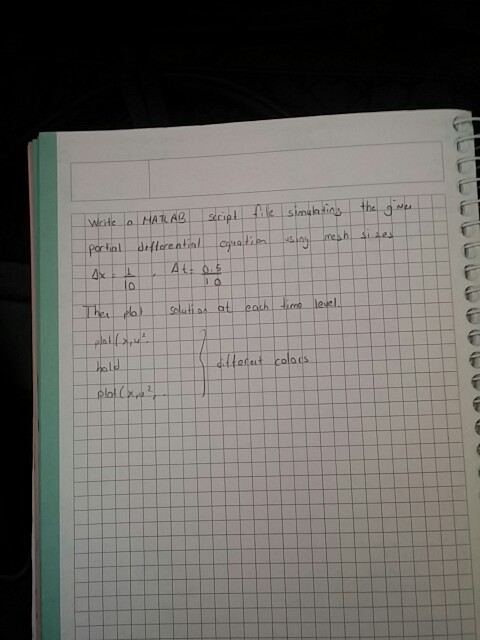 Write a MATLAB script file simulating the given
partial differential equation using mesh sizes
Δx = 1/10 , Δt = 0.5/10
Then plot solution at each time level.
plot(x,u¹.
hold
plot(x,u²,..
different colors